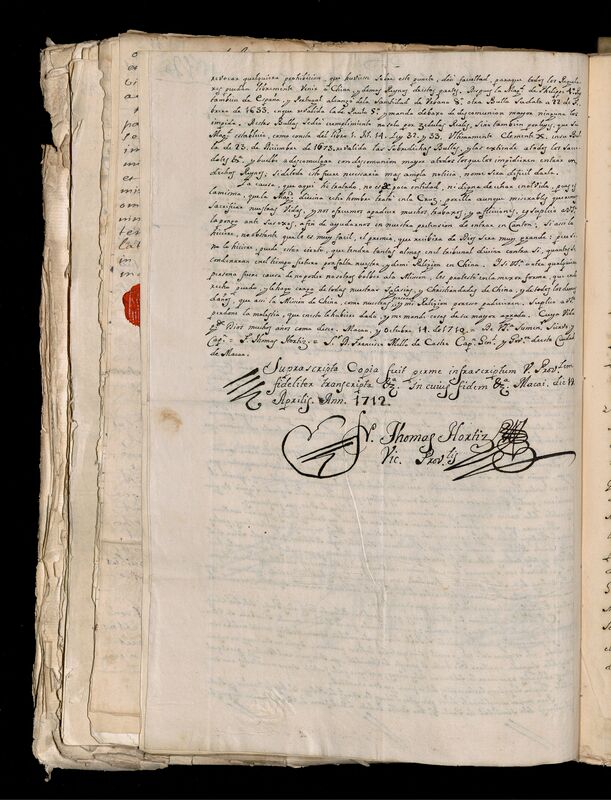 revocar qualquiera prohibicion, que huviesse sobre este puncto, dió facultad, paraque todos los Regula-
res puedan libremente venir à China, y demas Reynos destas partes. Despues la Magd. de Philipo 4º. Rey
tambien de España, y Portugal alcançó dela Santidad de Urbano 8º. otra Bulla su data a 22 de Fe-
brero de 1633, enque revalida la de Paulo 5º. y manda debaxo de descomunion mayor ninguno los
impida. Destas Bullas pedir cumplimiento no solo por Zedulas Reales, sino tambien porleyes, que su
Magd. establecio, como consta del libro 1. tit. 14. Ley 32. y 33. Ultimamente Clemente X. en su Bul-
la de 23. de Diciembre de 1673. revalida las sobredichas Bullas, y las extiende atodos los Sacer-
dotes &c. y buelbe a descomulgar con descomunion mayor atodos los que les impidieren entrar en
dichos Reynos. Si de todo esto fuere necessaria mas amplia noticia, nome sera dificil darla.
La causa, que aqui he tratado, no es de poca entidad, ni digna de echar en olvido, pues es
la misma, que la Magd. divina este hombre trató en la Cruz, por ella aunque miserables queremos
sacrificar nuestras Vidas, y nos ofrecemos apadecer muchos trabajos, y aflicciones, y Suplico a VSª.
la ponga ante sus ojos, afin de ayudarnos en nuestra pretension de entrar en Canton. Si assi lo
hiciere, no obstante que le es muy facil, el premio, que recibira de Dios sera muy grande: pero si
no lo hiciere, puede estar cierto, que tendra tantas almas en el tribunal divino contra si, quantas se
condenaran en el tiempo futuro por falta nuestra, y demi Religion en China. Y si VSª. o otra qualquier
persona fuere causa de no poder nosotros bolber ala Mission, les protesto en la mejor forma, que en de-
recho puedo, y le hago cargo de todas nuestras Iglesias, y Christiandades de China, y de todos los demas
daños, que assi la Mission de China, como nuestras personas y mi Religion por esso padecieren. Suplico a VSª.
perdone la molestia, que en esto le hubiere dado, y me mande cosas de su mayor agrado. Cuya Vida
gde. Dios muchos años como deseo. Macao, y Octubre 14. de 1710.
Capn. = F. Thomas Hortiz. = Sr. D. Francisco Mello de Castro Capn. Genl. y Govor. desta Ciudad
de Macao.
Suprascripta Copia fuit per me infrascriptum V. Provlem
fideliter transcripta &ª. In cuius fidem &ª. Macai. die 14
Aprilis. Ann. 1712.
Fr. Thomas Hortiz
Vic. Provlis